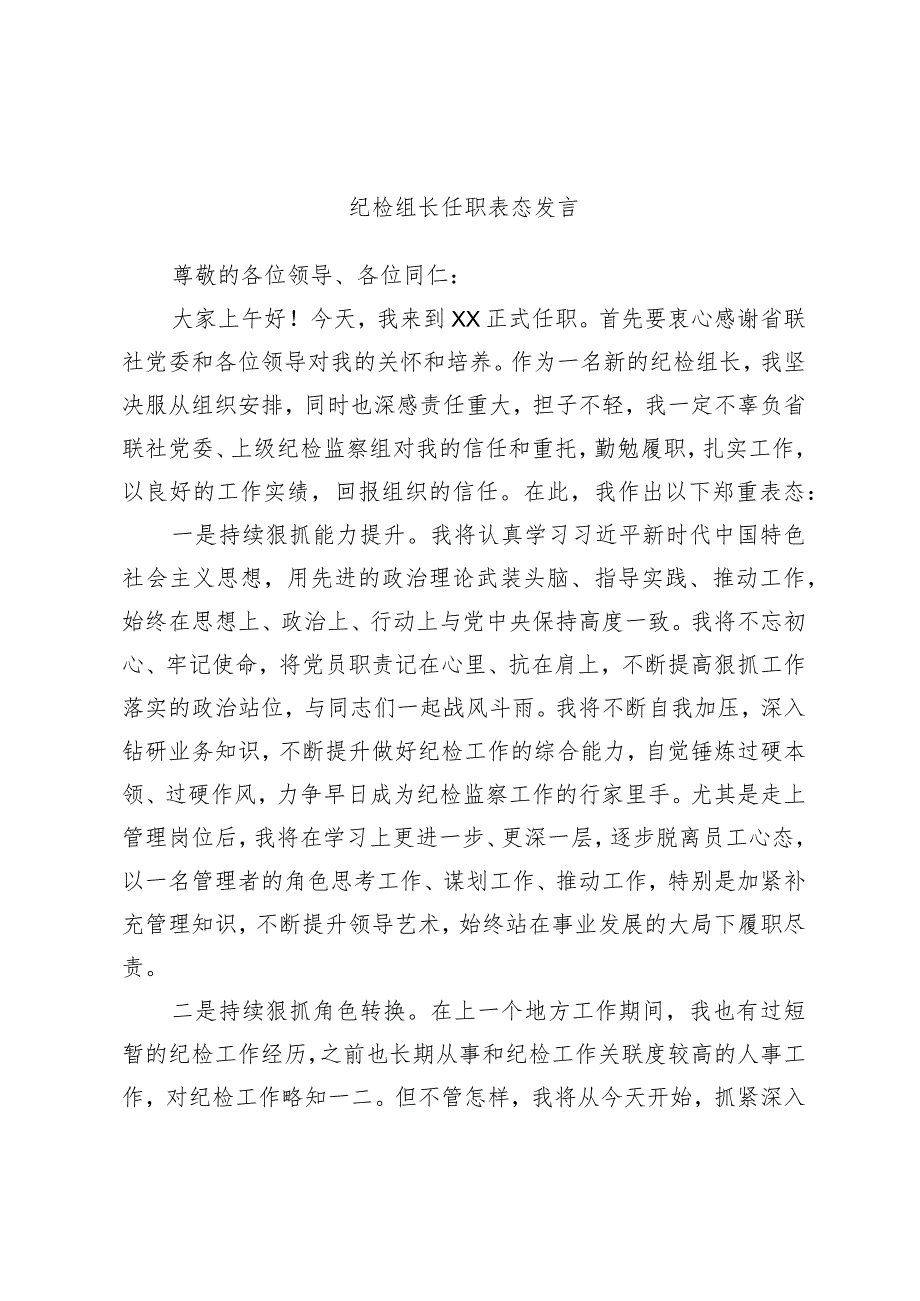 纪检组长任职表态发言
尊敬的各位领导、各位同仁：
大家上午好！今天，我来到 XX 正式任职。首先要衷心感谢省联
社党委和各位领导对我的关怀和培养。作为一名新的纪检组长，我坚
决服从组织安排，同时也深感责任重大，担子不轻，我一定不辜负省
联社党委、上级纪检监察组对我的信任和重托，勤勉履职，扎实工作，
以良好的工作实绩，回报组织的信任。在此，我作出以下郑重表态：
一是持续狠抓能力提升。我将认真学习习近平新时代中国特色
社会主义思想，用先进的政治理论武装头脑、指导实践、推动工作，
始终在思想上、政治上、行动上与党中央保持高度一致。我将不忘初
心、牢记使命，将党员职责记在心里、抗在肩上，不断提高狠抓工作
落实的政治站位，与同志们一起战风斗雨。我将不断自我加压，深入
钻研业务知识，不断提升做好纪检工作的综合能力，自觉锤炼过硬本
领、过硬作风，力争早日成为纪检监察工作的行家里手。尤其是走上
管理岗位后，我将在学习上更进一步、更深一层，逐步脱离员工心态，
以一名管理者的角色思考工作、谋划工作、推动工作，特别是加紧补
充管理知识，不断提升领导艺术，始终站在事业发展的大局下履职尽
责。
二是持续狠抓角色转换。在上一个地方工作期间，我也有过短
暂的纪检工作经历，之前也长期从事和纪检工作关联度较高的人事工
作，对纪检工作略知一二。但不管怎样，我将从今天开始，抓紧深入